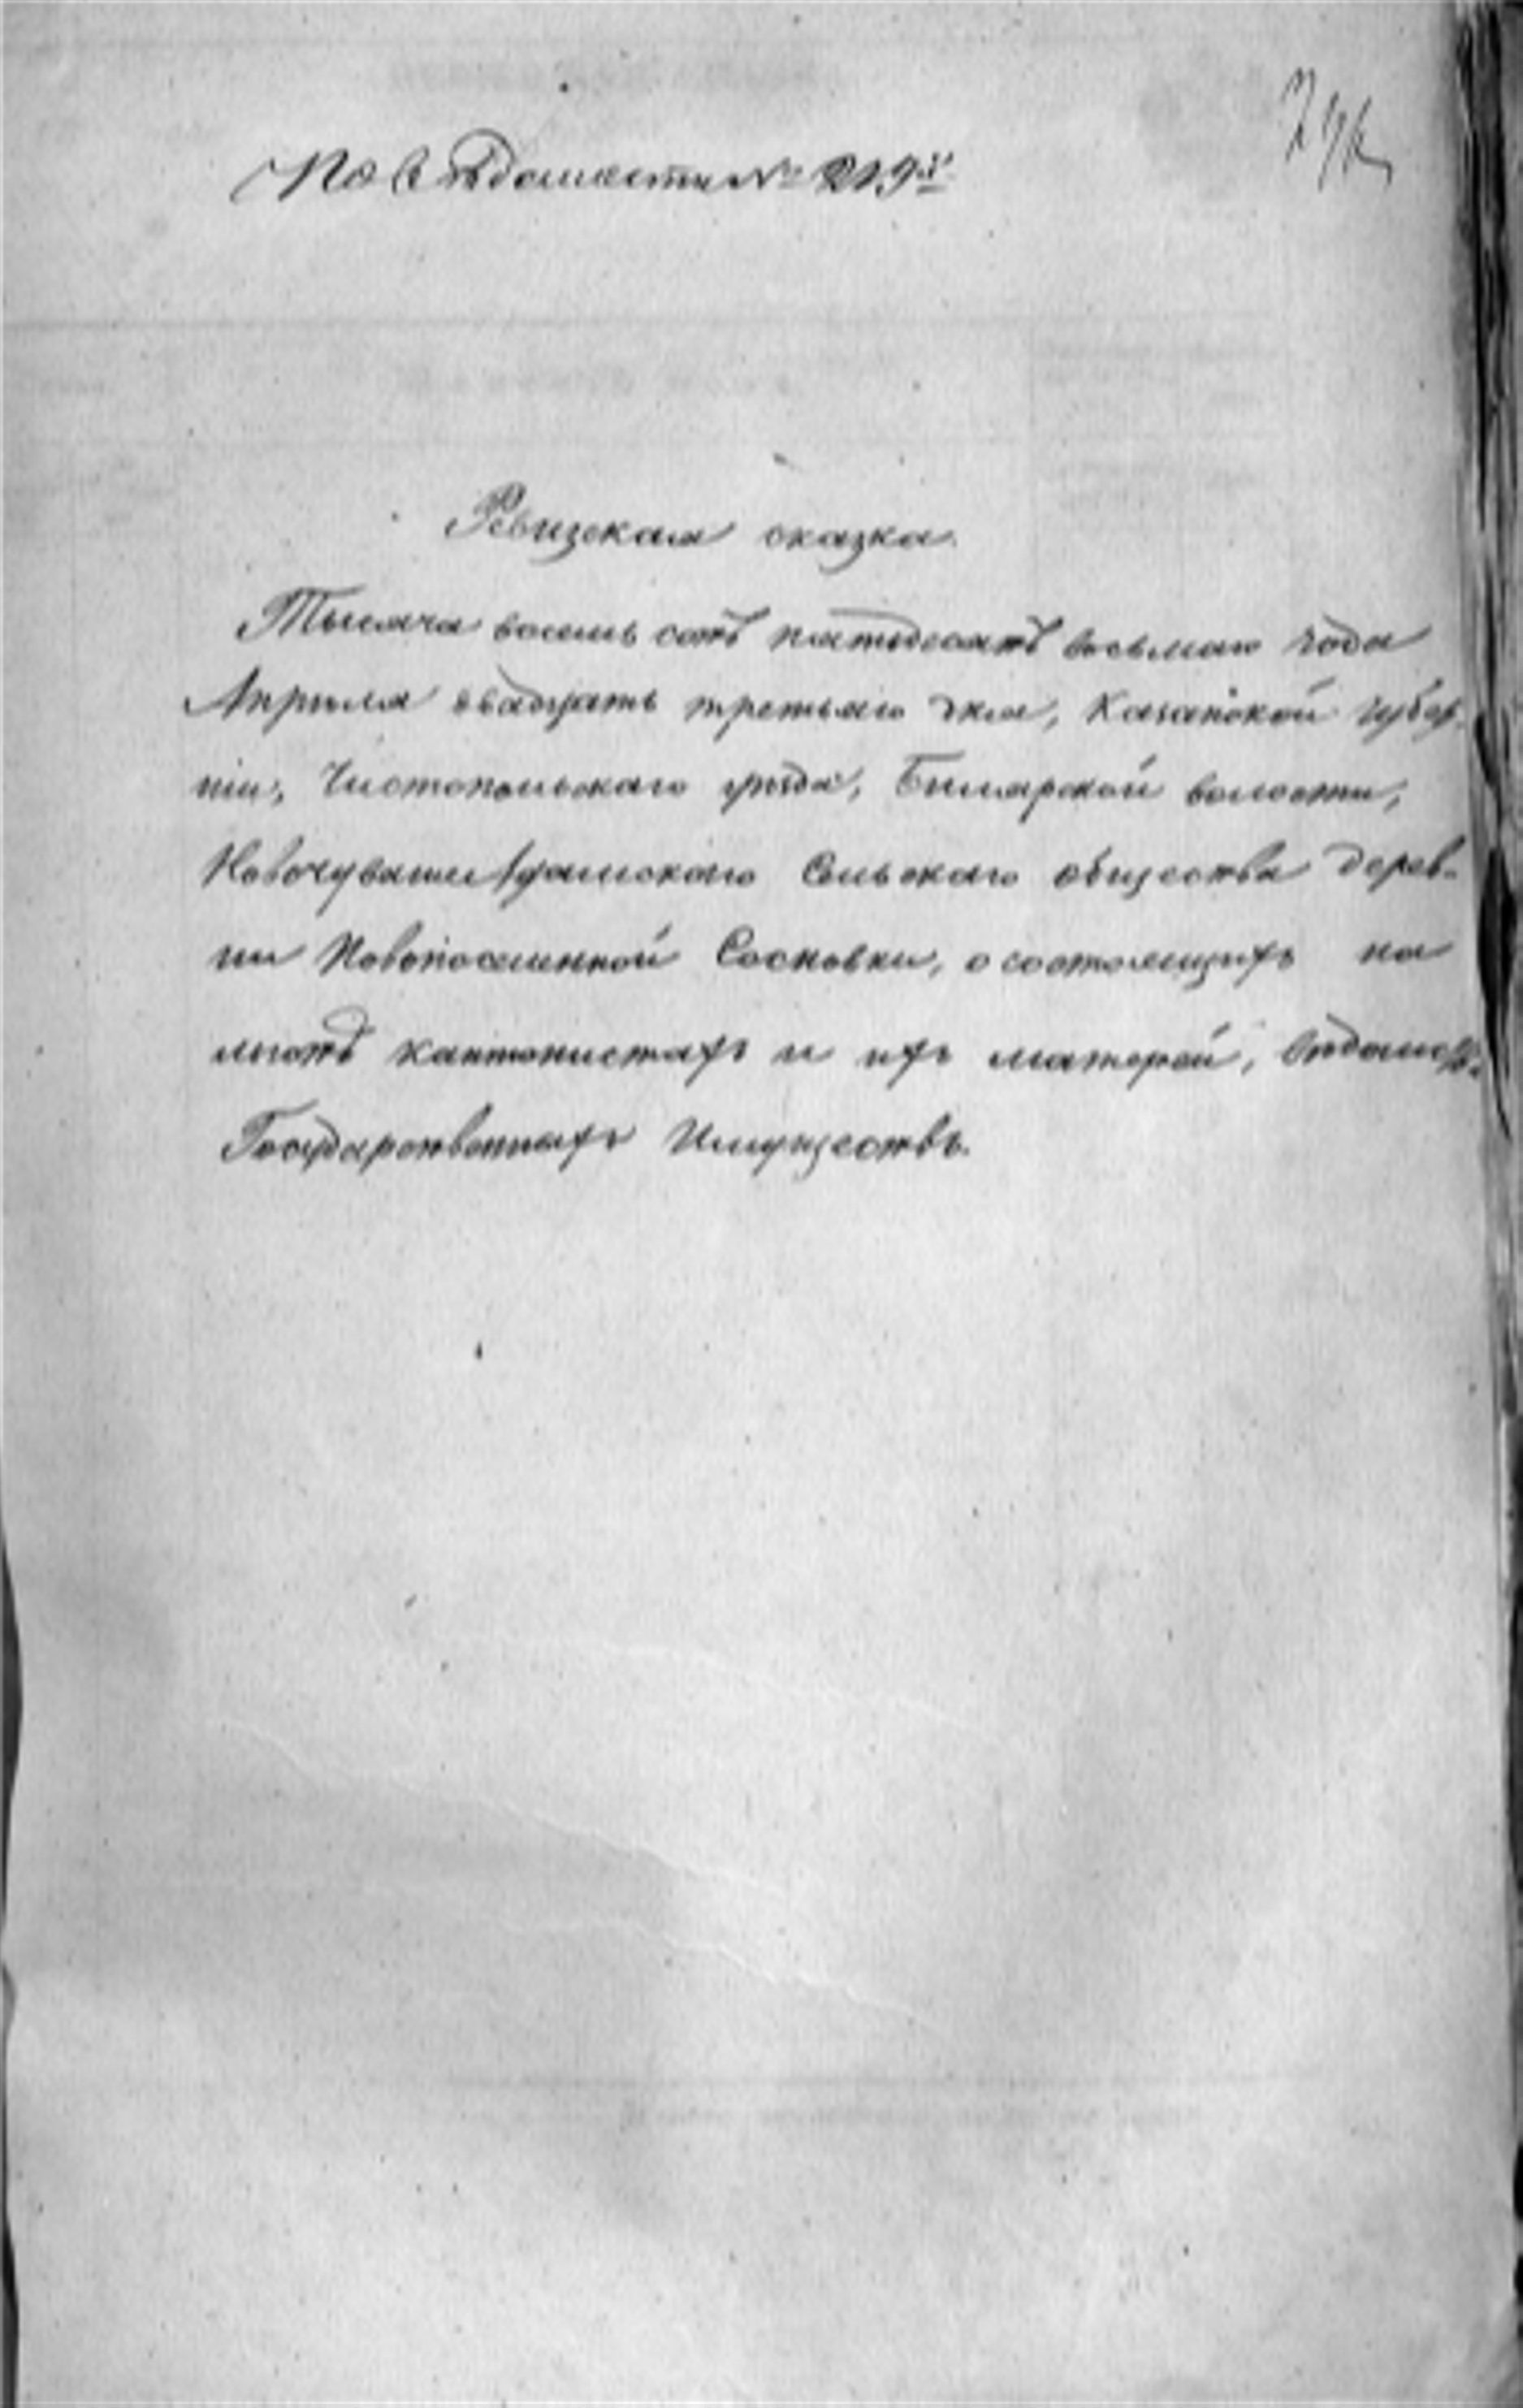 По Вѣдомости № 219й
Ревизская сказка.
Тысяча восемь сотъ пятьдесятъ восьмаго года
Апрѣля двадцать третьяго дня, Казанской Губер-
ніи, Чистопольскаго уѣзда, Билярской волости,
Сельскаго общества дерев-
ни Новопоселенной Сосновки, о состоящихъ на
лицѣ кантонистахъ и ихъ матерей, Вѣдомства
Государственныхъ Имуществъ.